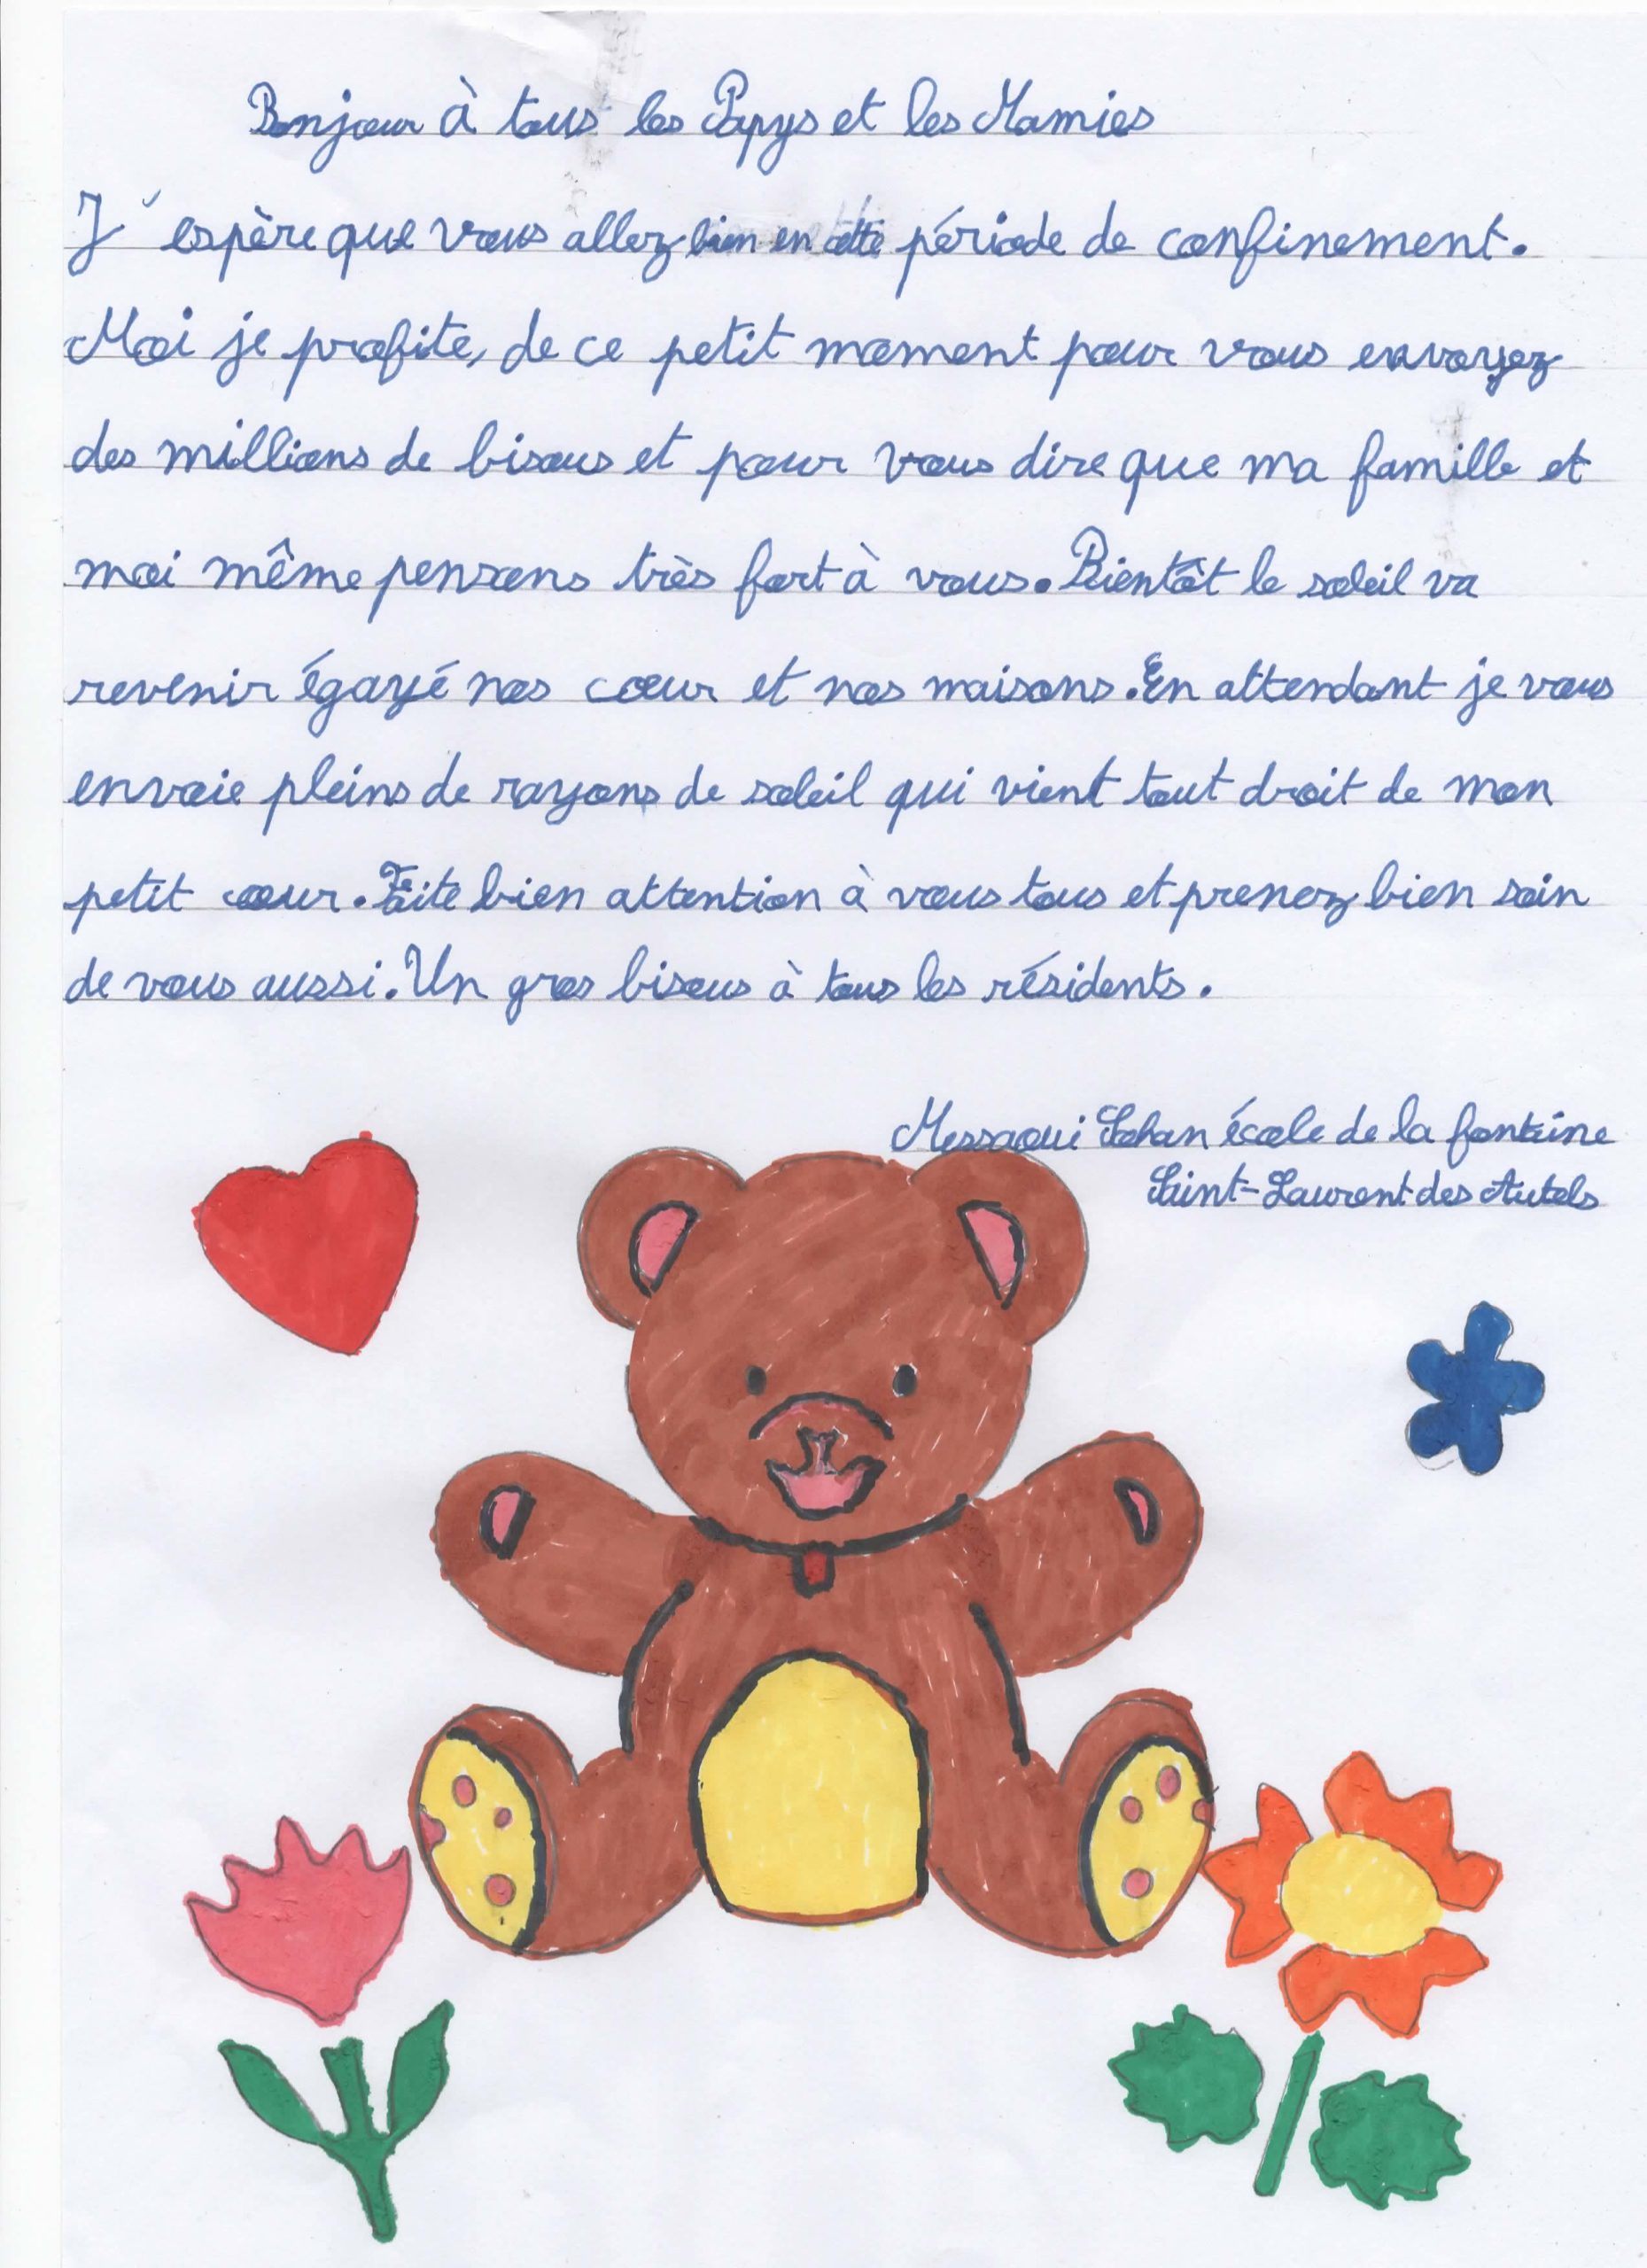 Bonjour à tous les Papys et les Mamies
J'espère que vous allez bien en cette période de confinement.
Moi je profite, de ce petit moment pour vous envoyez
des millions de bisous et pour vous dire que ma famille et
moi même pensons très fort à vous. Bientôt le soleil va
revenir égayé nos cœur et nos maisons. En attendant je vous
envoie pleins de rayons de soleil qui vient tout droit de mon
petit cœur. Faite bien attention à vous tous et prenez bien soin
de vous aussi. Un gros bisous à tous les résidents.
Messaoui Sohan école de la fontaine
Saint-Laurent des Autels